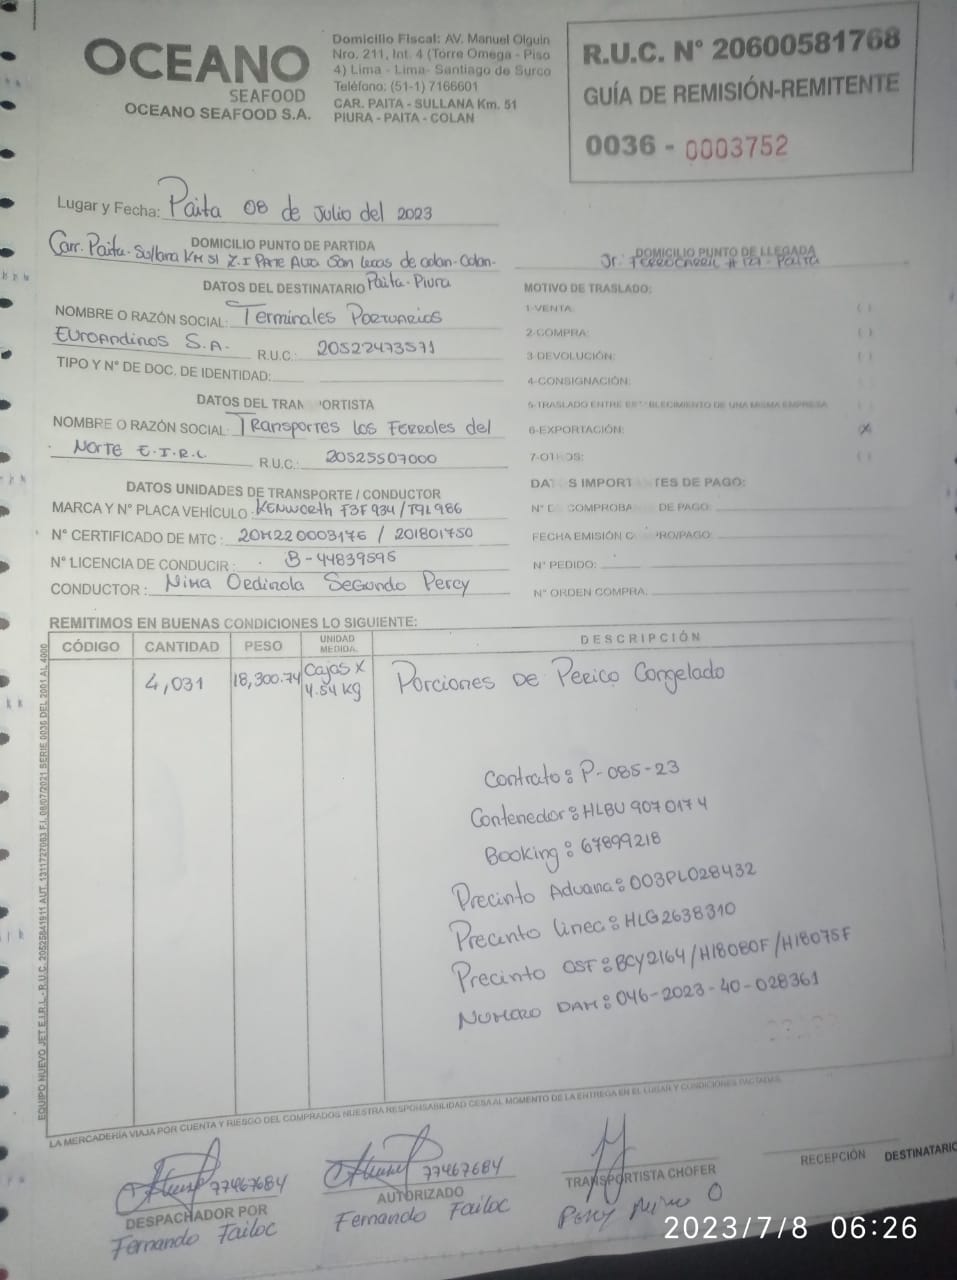 OCEANO
SEAFOOD
OCEANO SEAFOOD S.A.
Domicilio Fiscal: AV. Manuel Olguin
Nro. 211, Int. 4 (Torre Omega - Piso
4) Lima - Lima- Santiago de Surco
Teléfono: (51-1) 7166601
CAR. PAITA - SULLANA Km. 51
PIURA - PAITA - COLAN
R.U.C. N° 20600581768
GUÍA DE REMISIÓN-REMITENTE
0036 - 0003752
Lugar y Fecha: Paita 08 de Julio del 2023
DOMICILIO PUNTO DE PARTIDA
Carr. Paita-Sullana KM 51 Z.I PARTE ALTA San Lucas de colan-Colan-
Paita-Piura
DOMICILIO PUNTO DE LLEGADA
Jr. FERROCARRIL # 127 - Paita
DATOS DEL DESTINATARIO
NOMBRE O RAZÓN SOCIAL: Terminales Portuarios
Euroandinos S.A. R.U.C.: 20522473571
TIPO Y N° DE DOC. DE IDENTIDAD:
DATOS DEL TRAN PORTISTA
NOMBRE O RAZÓN SOCIAL: Transportes los Ferroles del
Norte E.I.R.L R.U.C.: 20525507000
DATOS UNIDADES DE TRANSPORTE / CONDUCTOR
MARCA Y N° PLACA VEHÍCULO: Kenworth F3F 934 / T9L 986
N° CERTIFICADO DE MTC: 20M220003176 / 201801750
N° LICENCIA DE CONDUCIR: B-44839595
CONDUCTOR: Nima Oedinola Segundo Percy
MOTIVO DE TRASLADO:
1-VENTA: ( )
2-COMPRA: ( )
3-DEVOLUCIÓN: ( )
4-CONSIGNACIÓN:
5-TRASLADO ENTRE ESTABLECIMIENTO DE UNA MISMA EMPRESA
6-EXPORTACIÓN: (X)
7-OTROS: ( )
DATOS IMPORTANTES DE PAGO:
N° DE COMPROBANTE DE PAGO:
FECHA EMISIÓN C PRO/PAGO:
N° PEDIDO:
N° ORDEN COMPRA:
REMITIMOS EN BUENAS CONDICIONES LO SIGUIENTE:
CÓDIGO CANTIDAD PESO UNIDAD MEDIDA. DESCRIPCIÓN
4,031 18,300.74 Cajas x 4.54 kg Porciones de Perico Congelado
Contrato: P-085-23
Contenedor: HLBU 9070174
Booking: 67899218
Precinto Aduana: 003PL028432
Precinto Linea: HLG2638310
Precinto OSF: BCY2164/H18080F/H18075F
Numero DAM: 046-2023-40-028361
EQUIPO NUEVO JET E.I.R.L - R.U.C. 20525841911 AUT. 1311727083 F.I. 08/07/2021 SERIE 0036 DEL 2001 AL 4000
LA MERCADERÍA VIAJA POR CUENTA Y RIESGO DEL COMPRADOS NUESTRA RESPONSABILIDAD CESA AL MOMENTO DE LA ENTREGA EN EL LUGAR Y CONDICIONES PACTADAS.
77467684
DESPACHADOR POR
Fernando Failoc
77467684
AUTORIZADO
Fernando Failoc
TRANSPORTISTA CHOFER
Percy Nima O
RECEPCIÓN DESTINATARIO
2023/7/8 06:26